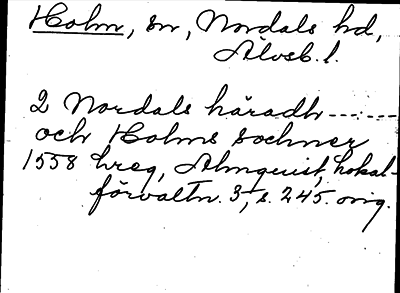 Holm, sn, Nordals hd,
Älvsb. l.
2 Nordals häradh -------
och Holms sochner
1558 hreg, Almquist, Lokal-
förvaltn. 3, s. 245. orig.